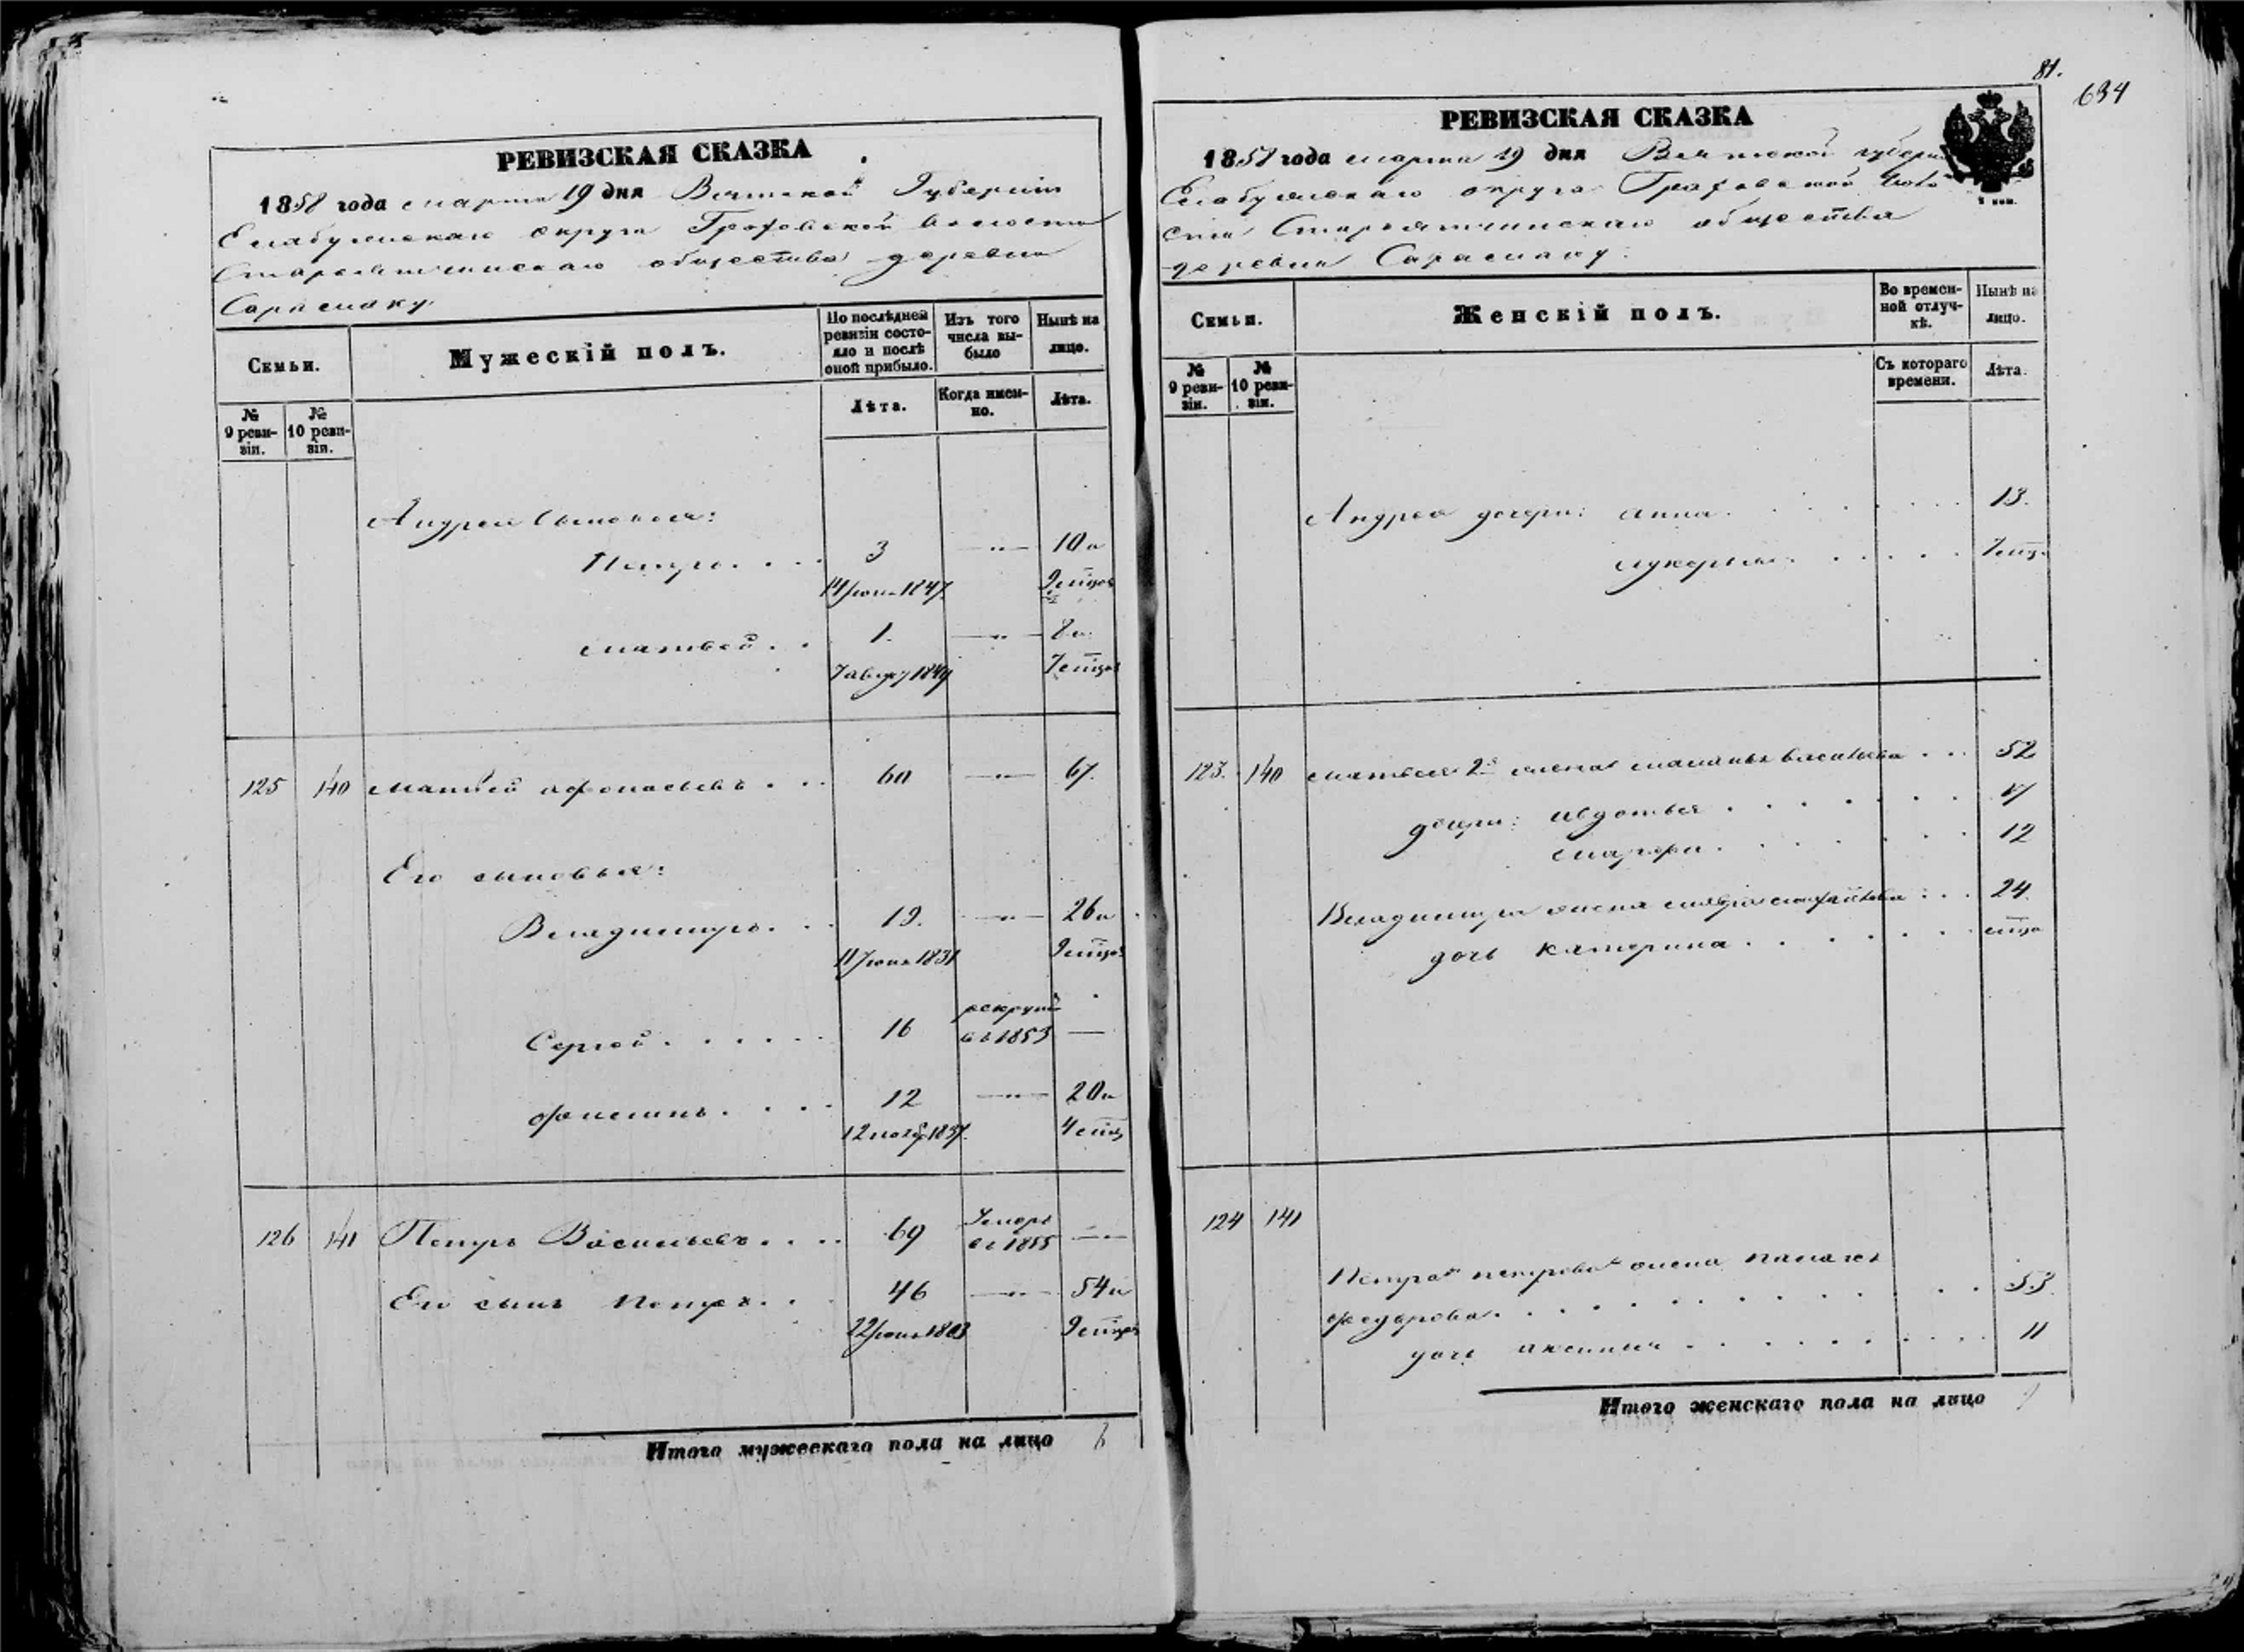 РЕВИЗСКАЯ СКАЗКА
1858 года марта 19 дня Вятской Губернiи
Елабужскаго округа Граховской волости
общества деревни
Сарамаку
Семьи.
Мужескiй полъ.
По послѣдней ревизiи состояло и послѣ оной прибыло.
Изъ того числа выбыло
Ныне на лицо.
№ 9 ревизiи.
№ 10 ревизiи.
Лѣта.
Когда именно.
Лѣта.
Андрея сыновья:
Петръ . . . 3 —„— 10 и
1847. 9 мцов
матвей . . 1. —„— 8 и
7 авгу 1849 7 мцов
125 140 матвей афонасьевъ . . . 60 —„— 67.
Его сыновья:
Владимиръ . . . 19. —„— 26 и
1831 9 мцов
Сергей . . . . . 16 рекрут въ 1853 —
12 —„— 20 и
12 нояб 1837. 4 мцов
126 141 Петръ Васильевъ . . . . 69 Умеръ въ 1855 —„—
Его сынъ Петръ . . . 46 —„— 54 и
1803 9 мцов
Итого мужескаго пола на лицо 6
81.
634
РЕВИЗСКАЯ СКАЗКА
1858 года марта 19 дня Вятской губерни
Елабужскаго округа Граховской воло
сти общества
деревни Сарамаку.
Семьи.
Женскiй полъ.
Во временной отлучкѣ.
Ныне на лицо.
№ 9 ревизiи.
№ 10 ревизiи.
Съ котораго времени.
Лѣта.
Андрея дочери: анна . . . . . . 13.
лукерья . . . . . 7 мцо
123. 140 матвея 2я жена васильева . . . 52
дочери: авдотья . . . . . . .
марфа . . . . . . . 12
Владимира жена . . . 24.
дочь катерина . . . . . . . мцо
124 141
Петра петрова жена
федорова . . . . . . . . . . 53.
дочь аксинья . . . . . . . . . 11
Итого женскаго пола на лицо